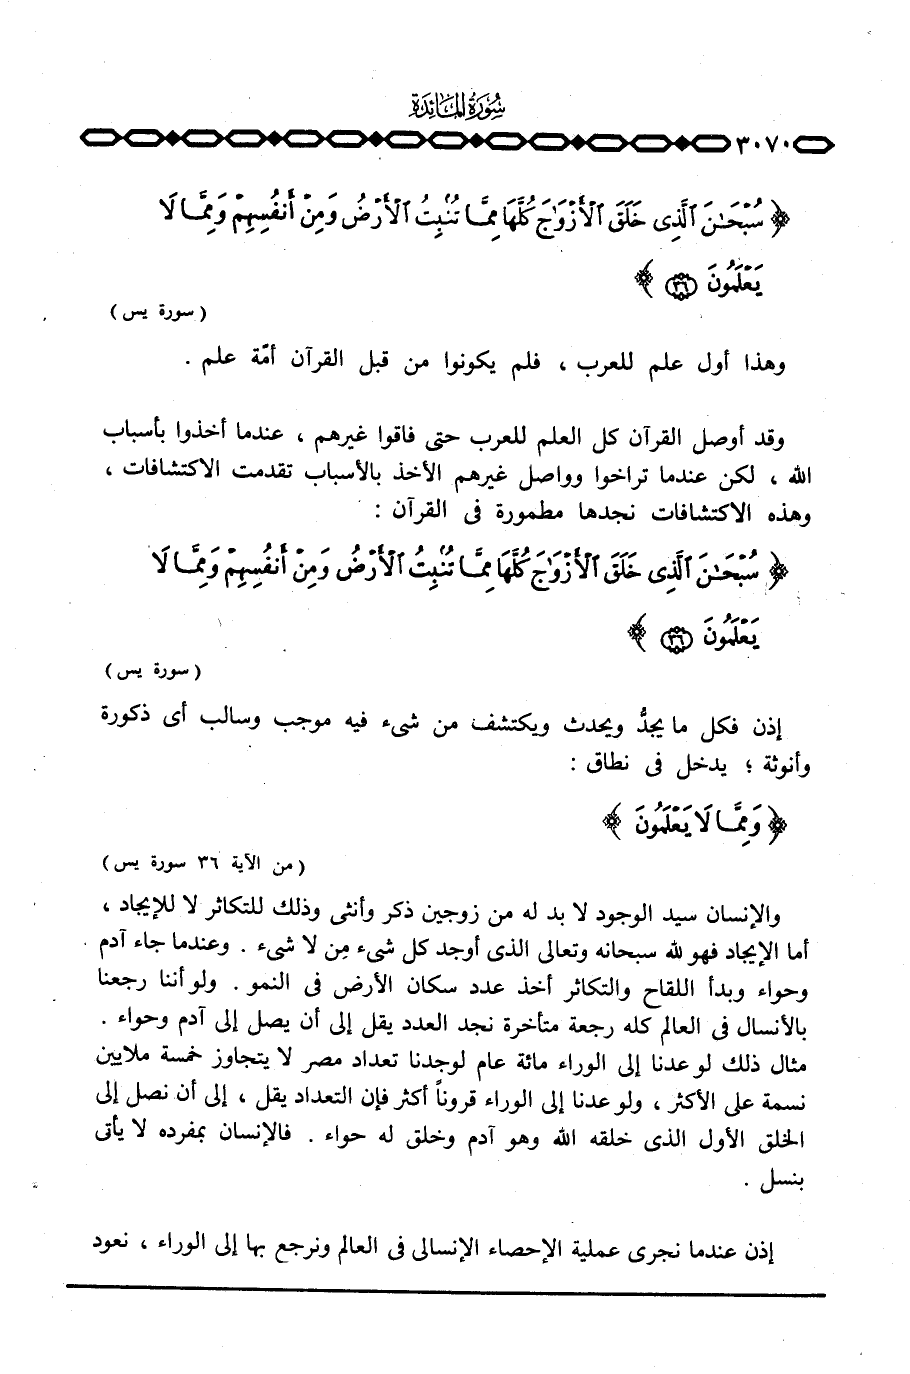 سُورَةُ المَائِدَة
٣٠٧٠
﴿ سُبْحَـٰنَ ٱلَّذِى خَلَقَ ٱلْأَزْوَٰجَ كُلَّهَا مِمَّا تُنۢبِتُ ٱلْأَرْضُ وَمِنْ أَنفُسِهِمْ وَمِمَّا لَا
يَعْلَمُونَ ﴿٣٦﴾ ﴾
( سورة يس )
وهذا أول علم للعرب ، فلم يكونوا من قبل القرآن أمّة علم .
وقد أوصل القرآن كل العلم للعرب حتى فاقوا غيرهم ، عندما أخذوا بأسباب
الله ، لكن عندما تراخوا وواصل غيرهم الأخذ بالأسباب تقدمت الاكتشافات ،
وهذه الاكتشافات نجدها مطمورة فى القرآن :
﴿ سُبْحَـٰنَ ٱلَّذِى خَلَقَ ٱلْأَزْوَٰجَ كُلَّهَا مِمَّا تُنۢبِتُ ٱلْأَرْضُ وَمِنْ أَنفُسِهِمْ وَمِمَّا لَا
يَعْلَمُونَ ﴿٣٦﴾ ﴾
( سورة يس )
إذن فكل ما يجدُّ ويحدث ويكتشف من شىء فيه موجب وسالب أى ذكورة
وأنوثة ؛ يدخل فى نطاق :
﴿ وَمِمَّا لَا يَعْلَمُونَ ﴾
( من الآية ٣٦ سورة يس )
والإنسان سيد الوجود لا بد له من زوجين ذكر وأنثى وذلك للتكاثر لا للإيجاد ،
أما الإيجاد فهو لله سبحانه وتعالى الذى أوجد كل شىء مِن لا شىء . وعندما جاء آدم
وحواء وبدأ اللقاح والتكاثر أخذ عدد سكان الأرض فى النمو . ولو أننا رجعنا
بالأنسال فى العالم كله رجعة متأخرة نجد العدد يقل إلى أن يصل إلى آدم وحواء .
مثال ذلك لو عدنا إلى الوراء مائة عام لوجدنا تعداد مصر لا يتجاوز خمسة ملايين
نسمة على الأكثر ، ولو عدنا إلى الوراء قروناً أكثر فإن التعداد يقل ، إلى أن نصل إلى
الخلق الأول الذى خلقه الله وهو آدم وخلق له حواء . فالإنسان بمفرده لا يأتى
بنسل .
إذن عندما نجرى عملية الإحصاء الإنسالى فى العالم ونرجع بها إلى الوراء ، نعود